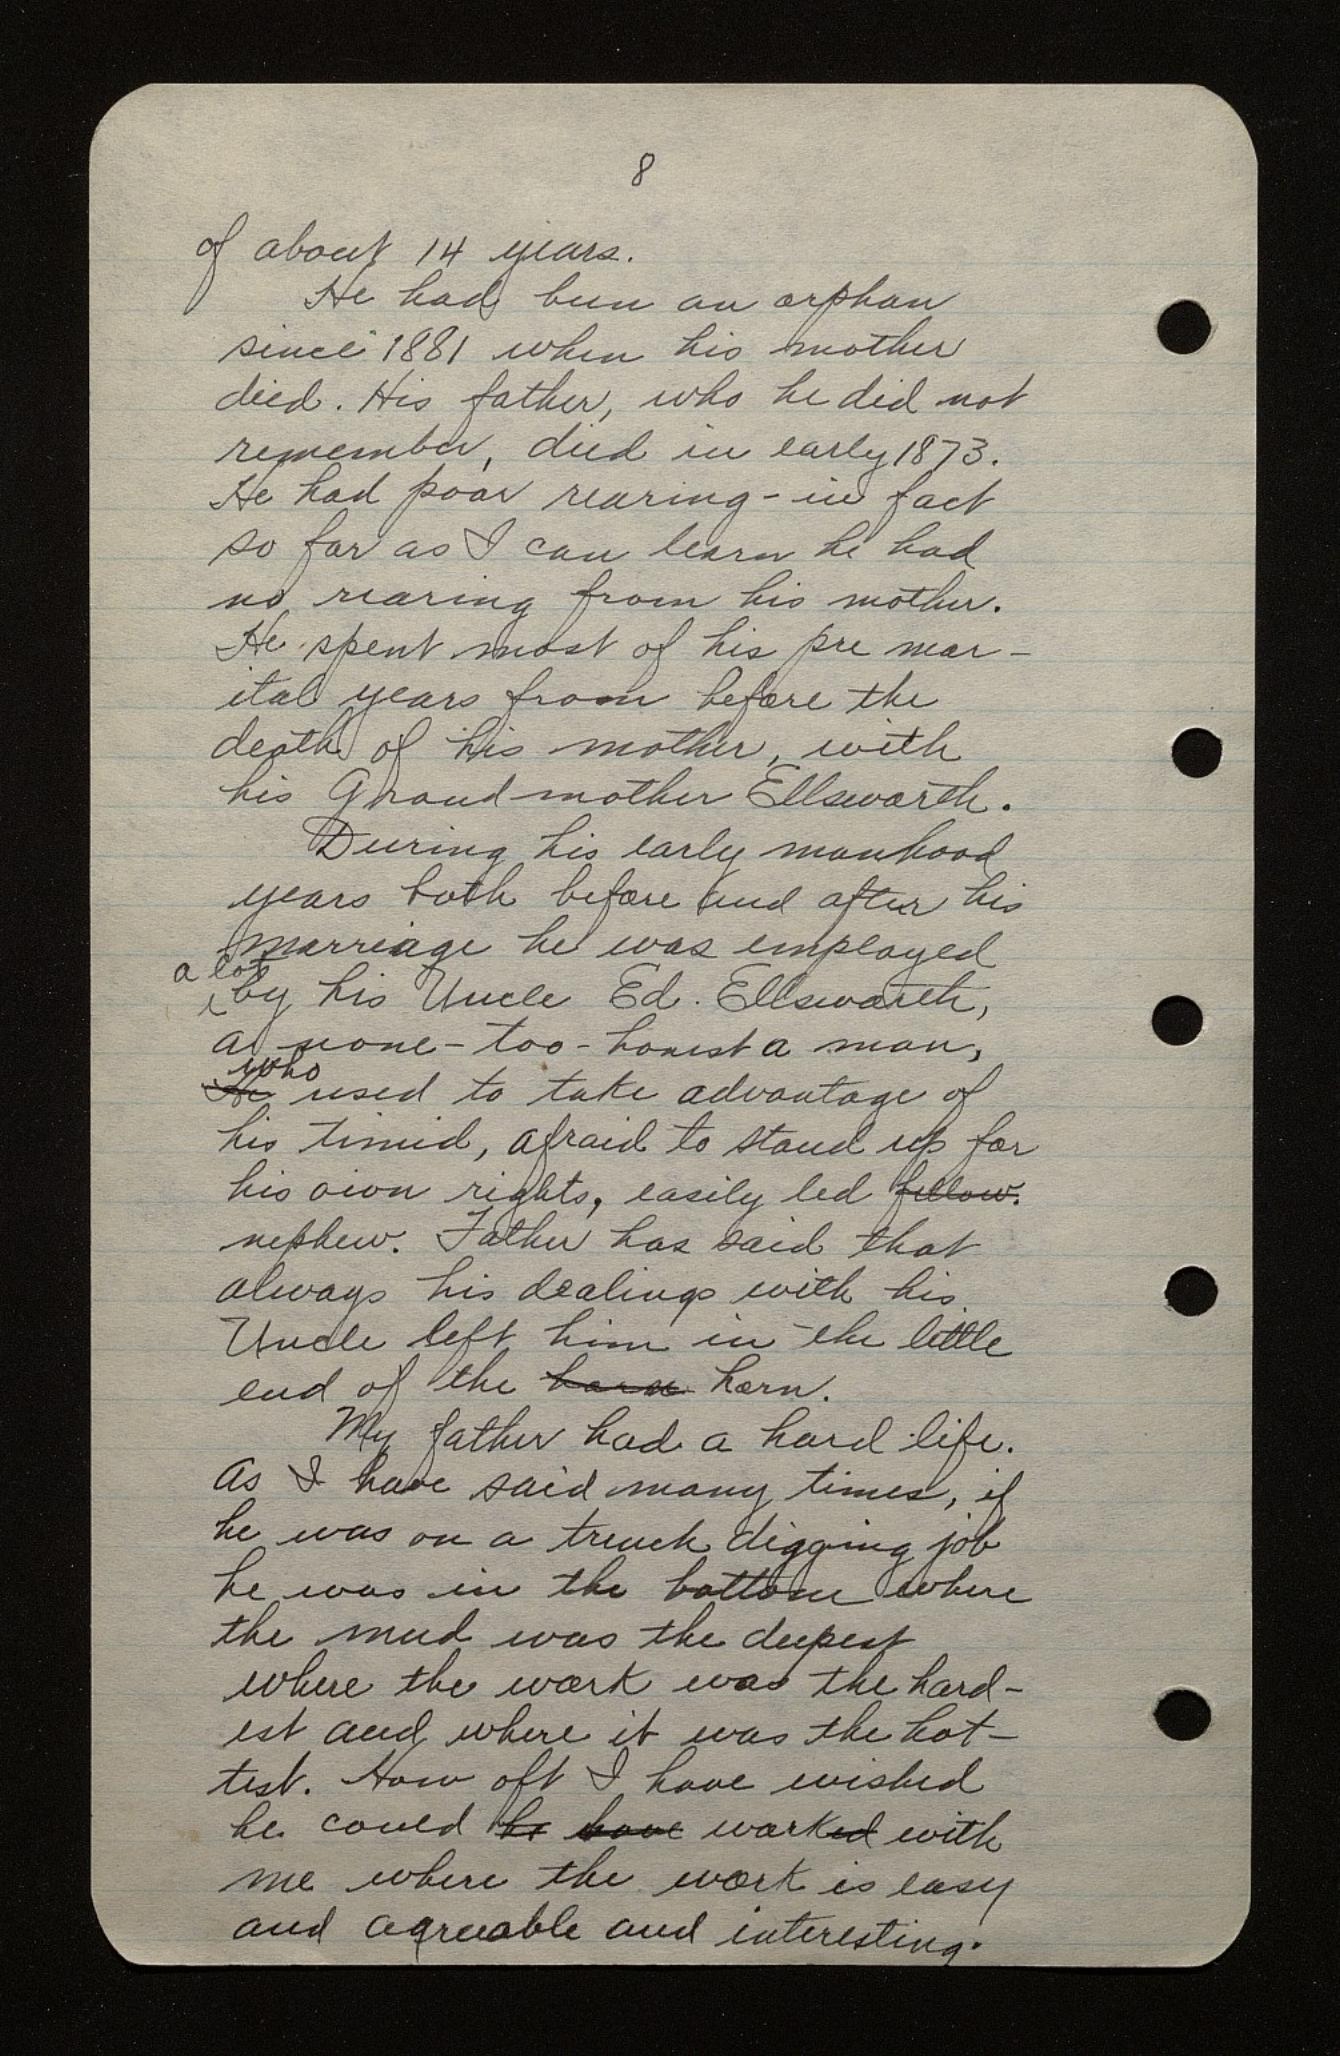 8
of about 14 years.
He had been an orphan
since 1881 when his mother
died. His father, who he did not
remember, died in early 1873.
He had poor rearing - in fact
so far as I can learn he had
no rearing from his mother.
He spent most of his pre mar-
ital years from before the
death of his mother, with
his Grandmother Ellsworth.
During his early manhood
years both before and after his
marriage he was employed
a lot
by his Uncle Ed. Ellsworth,
a none-too-honest a man,
who
He used to take advantage of
his timid, afraid to stand up for
his own rights, easily led fellow.
nephew. Father has said that
always his dealings with his
Uncle left him in the little
end of the horn horn.
My father had a hard life.
As I have said many times, if
he was on a trench digging job
he was in the bottom where
the mud was the deepest
where the work was the hard-
est and where it was the hot-
test. How oft I have wished
he could be have worked with
me where the work is easy
and agreeable and interesting.